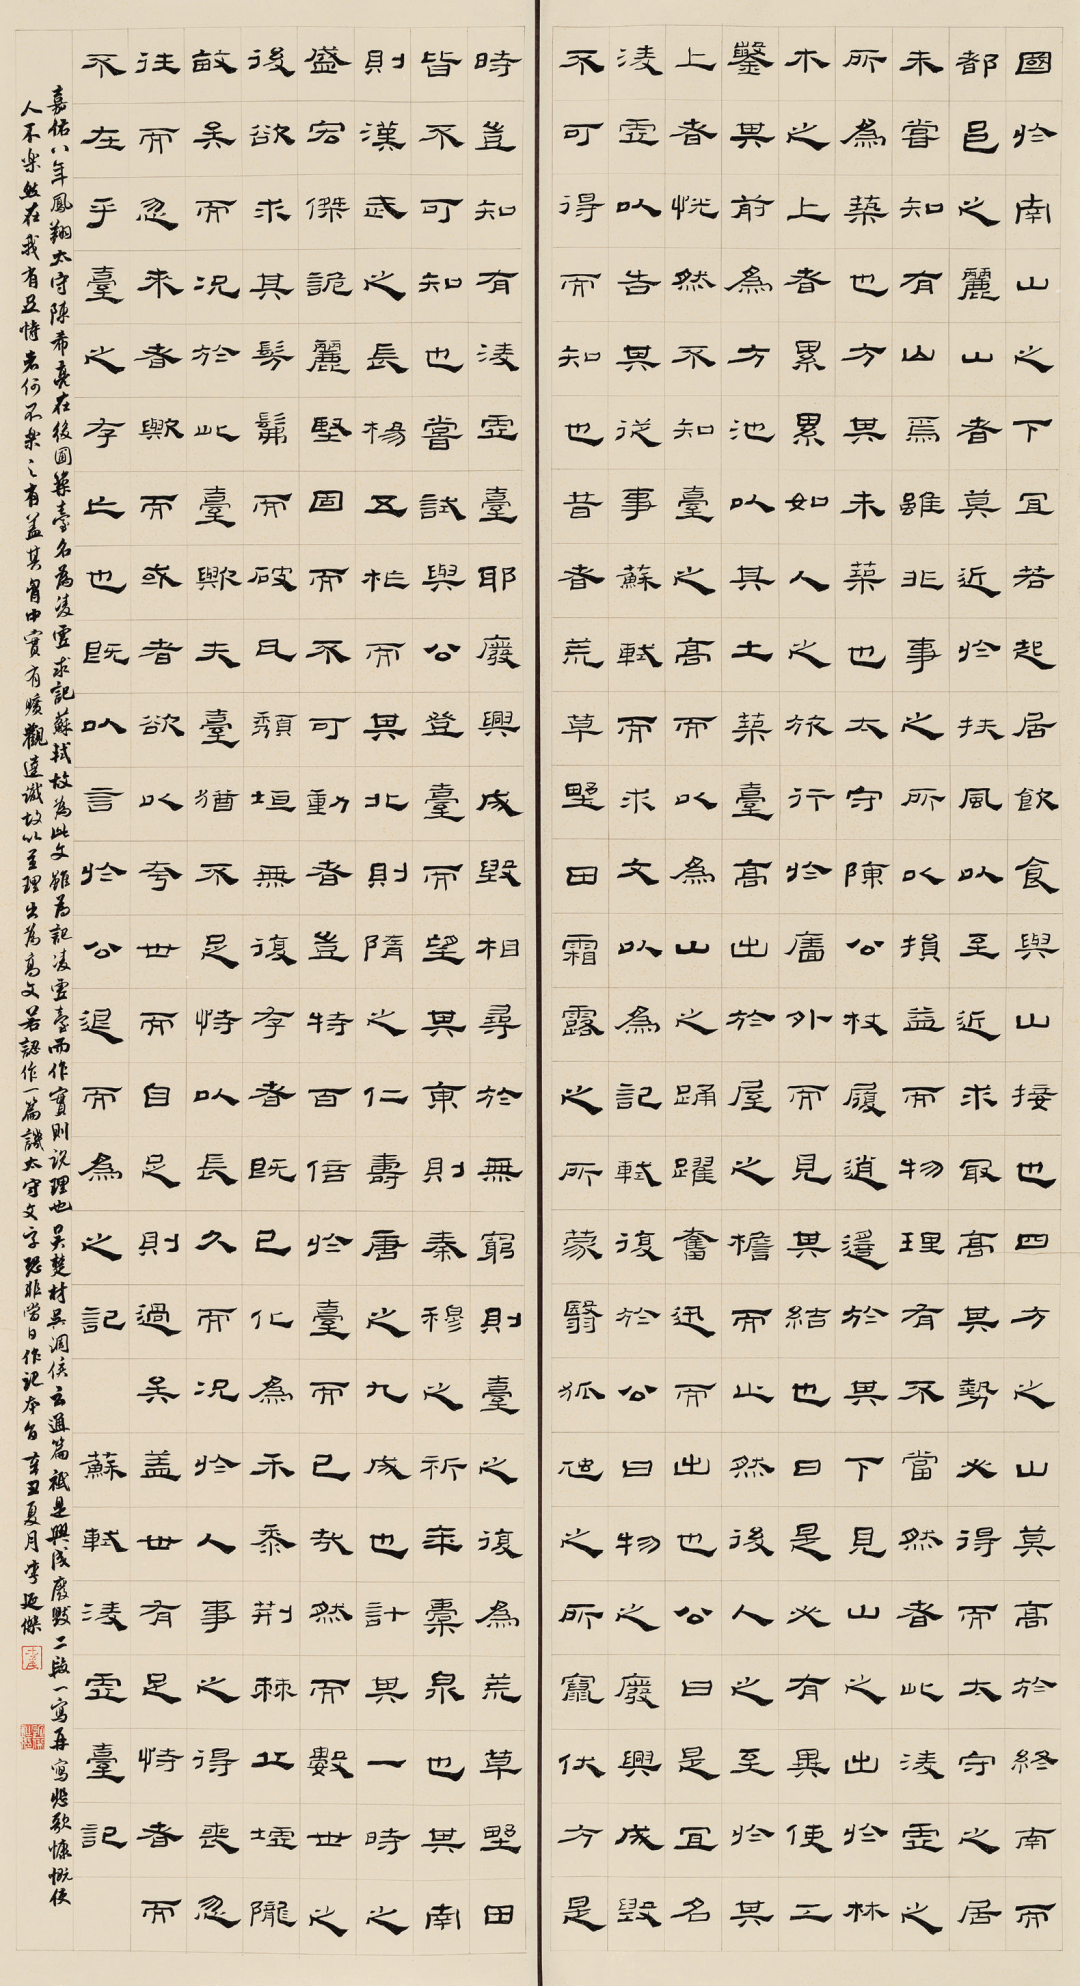 國於南山之下宜若起居飲食與山接也四方之山莫高於終南而
都邑之麗山者莫近於扶風以至近求最高其勢必得而太守之居
未嘗知有山焉雖非事之所以損益而物理有不當然者此淩虛之
所為築也方其未築也太守陳公杖履逍遙於其下見山之出於林
木之上者累累如人之旅行於牆外而見其結也曰是必有異使工
鑿其前為方池以其土築臺高出於屋之檐而止然後人之至於其
上者恍然不知臺之高而以為山之踊躍奮迅而出也公曰是宜名
淩虛以告其從事蘇軾而求文以為記軾復於公曰物之廢興成毀
不可得而知也昔者荒草野田霜露之所蒙翳狐虺之所竄伏方是
時豈知有淩虛臺耶廢興成毀相尋於無窮則臺之復為荒草野田
皆不可知也嘗試與公登臺而望其東則秦穆之祈年橐泉也其南
則漢武之長楊五柞而其北則隋之仁壽唐之九成也計其一時之
盛宏傑詭麗堅固而不可動者豈特百倍於臺而已哉然而數世之
後欲求其髣髴而破瓦頹垣無復存者既已化為禾黍荊棘丘墟隴
畝矣而況於此臺歟夫臺猶不足恃以長久而況於人事之得喪忽
往而忽來者歟而或者欲以夸世而自足則過矣蓋世有足恃者而
不在乎臺之存亡也既以言於公退而為之記 蘇軾淩虛臺記
嘉佑八年鳳翔太守陳希亮在後圃築臺名為淩虛求記蘇軾故為此文雖為記淩虛臺而作實則說理也吳楚材吳調侯云通篇祇是興成廢毀二段一寫再寫悲歌慷慨使
人不樂然在我有足恃者何不樂之有蓋其胸中實有曠觀達識故以至理出為高文若認作一篇譏太守文字恐非當日作記本旨 辛丑夏月李延傑